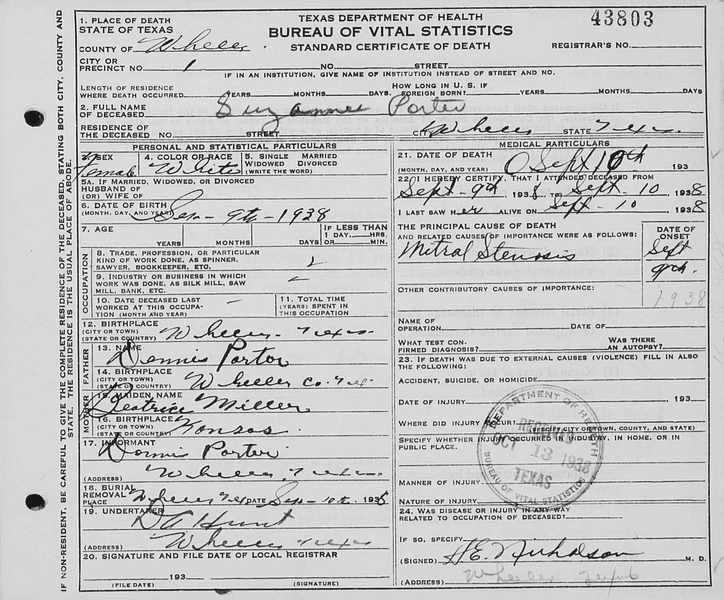 TEXAS DEPARTMENT OF HEALTH
BUREAU OF VITAL STATISTICS
STANDARD CERTIFICATE OF DEATH
43803
REGISTRAR'S NO.
1. PLACE OF DEATH
STATE OF TEXAS
COUNTY OF Wheeler
CITY OR
PRECINCT NO. 1 NO. STREET
IF IN AN INSTITUTION, GIVE NAME OF INSTITUTION INSTEAD OF STREET AND NO.
LENGTH OF RESIDENCE
WHERE DEATH OCCURRED YEARS MONTHS DAYS
HOW LONG IN U. S. IF
FOREIGN BORN? YEARS MONTHS DAYS
2. FULL NAME
OF DECEASED Suzanne Porter
RESIDENCE OF
THE DECEASED NO. STREET Wheeler STATE Texas
PERSONAL AND STATISTICAL PARTICULARS
3. SEX Female
4. COLOR OR RACE White
5. SINGLE MARRIED
WIDOWED DIVORCED
(WRITE THE WORD)
5A. IF MARRIED, WIDOWED OR DIVORCED
HUSBAND OF
(OR) WIFE OF
6. DATE OF BIRTH
(MONTH, DAY, AND YEAR) Sep - 9th - 1938
7. AGE YEARS MONTHS DAYS
IF LESS THAN
1 DAY HRS. MIN.
OCCUPATION
8. TRADE, PROFESSION, OR PARTICULAR
KIND OF WORK DONE, AS SPINNER,
SAWYER, BOOKKEEPER, ETC.
9. INDUSTRY OR BUSINESS IN WHICH
WORK WAS DONE, AS SILK MILL, SAW
MILL, BANK, ETC.
10. DATE DECEASED LAST
WORKED AT THIS OCCUPA-
TION (MONTH AND YEAR)
11. TOTAL TIME
(YEARS) SPENT IN
THIS OCCUPATION
12. BIRTHPLACE
(CITY OR TOWN)
(STATE OR COUNTRY) Wheeler Texas
FATHER
13. NAME Dennis Porter
14. BIRTHPLACE
(CITY OR TOWN)
(STATE OR COUNTRY) Wheeler Co. Tex
MOTHER
15. MAIDEN NAME Beatrice Miller
16. BIRTHPLACE
(CITY OR TOWN)
(STATE OR COUNTRY) Kansas
17. INFORMANT Dennis Porter
(ADDRESS) Wheeler, Texas
18. BURIAL
REMOVAL
PLACE Wheeler Tex DATE Sep - 10th 193
19. UNDERTAKER Hunt
(ADDRESS) Wheeler Texas
20. SIGNATURE AND FILE DATE OF LOCAL REGISTRAR
193
(FILE DATE) (SIGNATURE)
MEDICAL PARTICULARS
21. DATE OF DEATH
(MONTH, DAY, AND YEAR) Sept 10th 193
22. I HEREBY CERTIFY, THAT I ATTENDED DECEASED FROM
Sept - 9th 1938 TO Sept - 10 1938
I LAST SAW her ALIVE ON Sept - 10 1938
THE PRINCIPAL CAUSE OF DEATH
AND RELATED CAUSES OF IMPORTANCE WERE AS FOLLOWS:
Mitral Stenosis
DATE OF
ONSET
Sept
9th
1938
OTHER CONTRIBUTORY CAUSES OF IMPORTANCE:
NAME OF
OPERATION DATE OF
WHAT TEST CON-
FIRMED DIAGNOSIS?
WAS THERE
AN AUTOPSY?
23. IF DEATH WAS DUE TO EXTERNAL CAUSES (VIOLENCE) FILL IN ALSO
THE FOLLOWING:
ACCIDENT, SUICIDE, OR HOMICIDE
DATE OF INJURY 193
WHERE DID INJURY OCCUR?
(SPECIFY CITY OR TOWN, COUNTY, AND STATE)
SPECIFY WHETHER INJURY OCCURRED IN INDUSTRY, IN HOME, OR IN
PUBLIC PLACE.
MANNER OF INJURY
NATURE OF INJURY
24. WAS DISEASE OR INJURY IN ANY WAY
RELATED TO OCCUPATION OF DECEASED?
IF SO, SPECIFY
(SIGNED) H.E. Nicholson M. D.
(ADDRESS) Wheeler Texas
DEPARTMENT OF HEALTH
RECEIVED
OCT 13 1938
TEXAS
BUREAU OF VITAL STATISTICS
IF NON-RESIDENT, BE CAREFUL TO GIVE THE COMPLETE RESIDENCE OF THE DECEASED, STATING BOTH CITY, COUNTY AND
STATE. THE RESIDENCE IS THE USUAL PLACE OF ABODE.